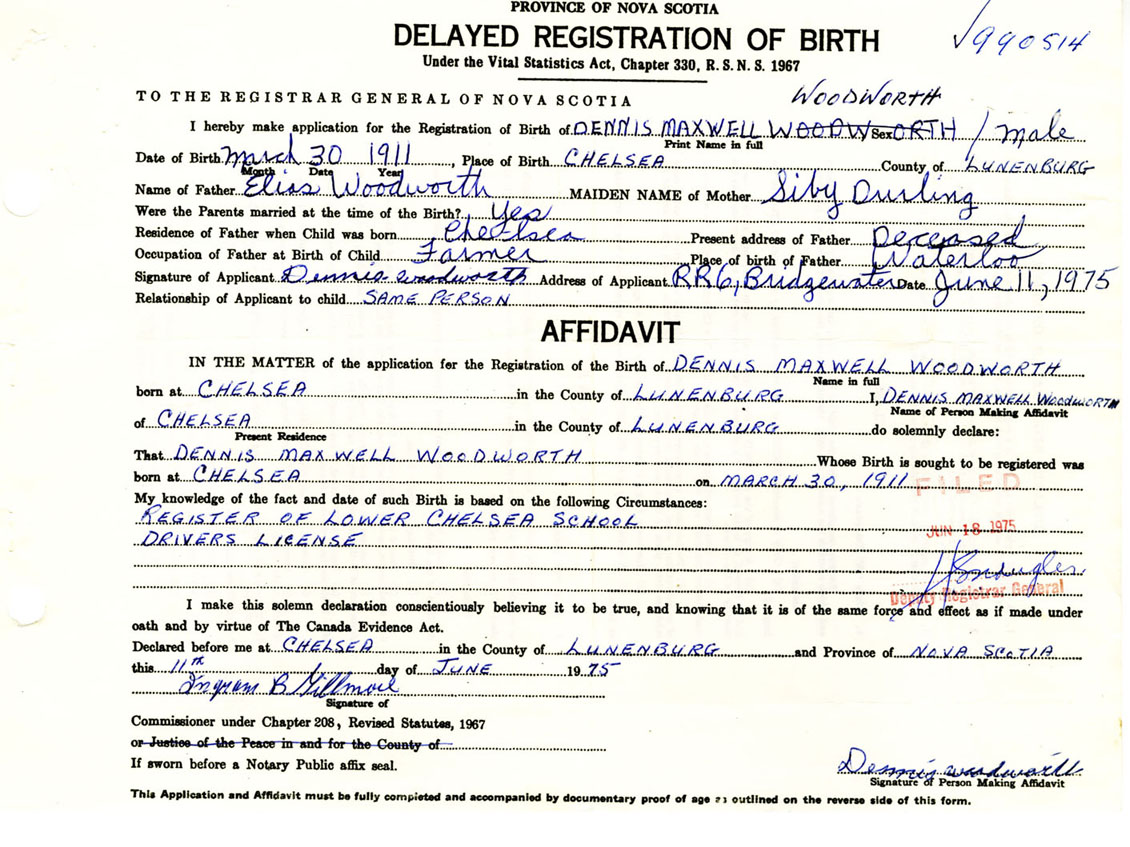 PROVINCE OF NOVA SCOTIA
DELAYED REGISTRATION OF BIRTH
√990514
Under the Vital Statistics Act, Chapter 330, R. S. N. S. 1967
TO THE REGISTRAR GENERAL OF NOVA SCOTIA
WOODWORTH
I hereby make application for the Registration of Birth of DENNIS MAXWELL WOODWORTH Sex / Male
Print Name in full
Date of Birth March 30 1911, Place of Birth CHELSEA County of LUNENBURG
Month Date Year
Name of Father Elias Woodworth MAIDEN NAME of Mother Siby Durling
Were the Parents married at the time of the Birth? Yes
Residence of Father when Child was born Chelsea Present address of Father Deceased
Occupation of Father at Birth of Child Farmer Place of birth of Father Waterloo
Signature of Applicant Dennis Woodworth Address of Applicant RR6, Bridgewater Date June 11, 1975
Relationship of Applicant to child SAME PERSON
AFFIDAVIT
IN THE MATTER of the application for the Registration of the Birth of DENNIS MAXWELL WOODWORTH
Name in full
born at CHELSEA in the County of LUNENBURG I, DENNIS MAXWELL WOODWORTH
Name of Person Making Affidavit
of CHELSEA in the County of LUNENBURG do solemnly declare:
Present Residence
That DENNIS MAXWELL WOODWORTH Whose Birth is sought to be registered was
born at CHELSEA on MARCH 30, 1911
FILED
My knowledge of the fact and date of such Birth is based on the following Circumstances:
REGISTER OF LOWER CHELSEA SCHOOL
JUN 18 1975
DRIVERS LICENSE
Deputy Registrar General
I make this solemn declaration conscientiously believing it to be true, and knowing that it is of the same force and effect as if made under
oath and by virtue of The Canada Evidence Act.
Declared before me at CHELSEA in the County of LUNENBURG and Province of NOVA SCOTIA
this 11th day of JUNE 1975
Ingram B Gillmore
Signature of
Commissioner under Chapter 208, Revised Statutes, 1967
or Justice of the Peace in and for the County of
If sworn before a Notary Public affix seal.
Dennis Woodworth
Signature of Person Making Affidavit
This Application and Affidavit must be fully completed and accompanied by documentary proof of age as outlined on the reverse side of this form.